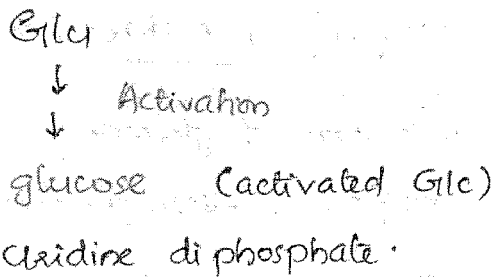 Glu
↓
↓ Activation
glucose (activated Glc)
Uridine diphosphate.